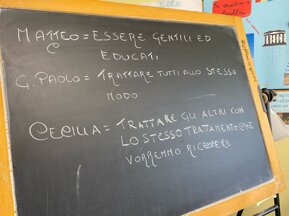 MATTEO = ESSERE GENTILI ED
EDUCATI
G. PAOLO = TRATTARE TUTTI ALLO STESSO
MODO
CECILIA = TRATTARE GLI ALTRI CON
LO STESSO TRATTAMENTO CHE
VORREMMO RICEVERE